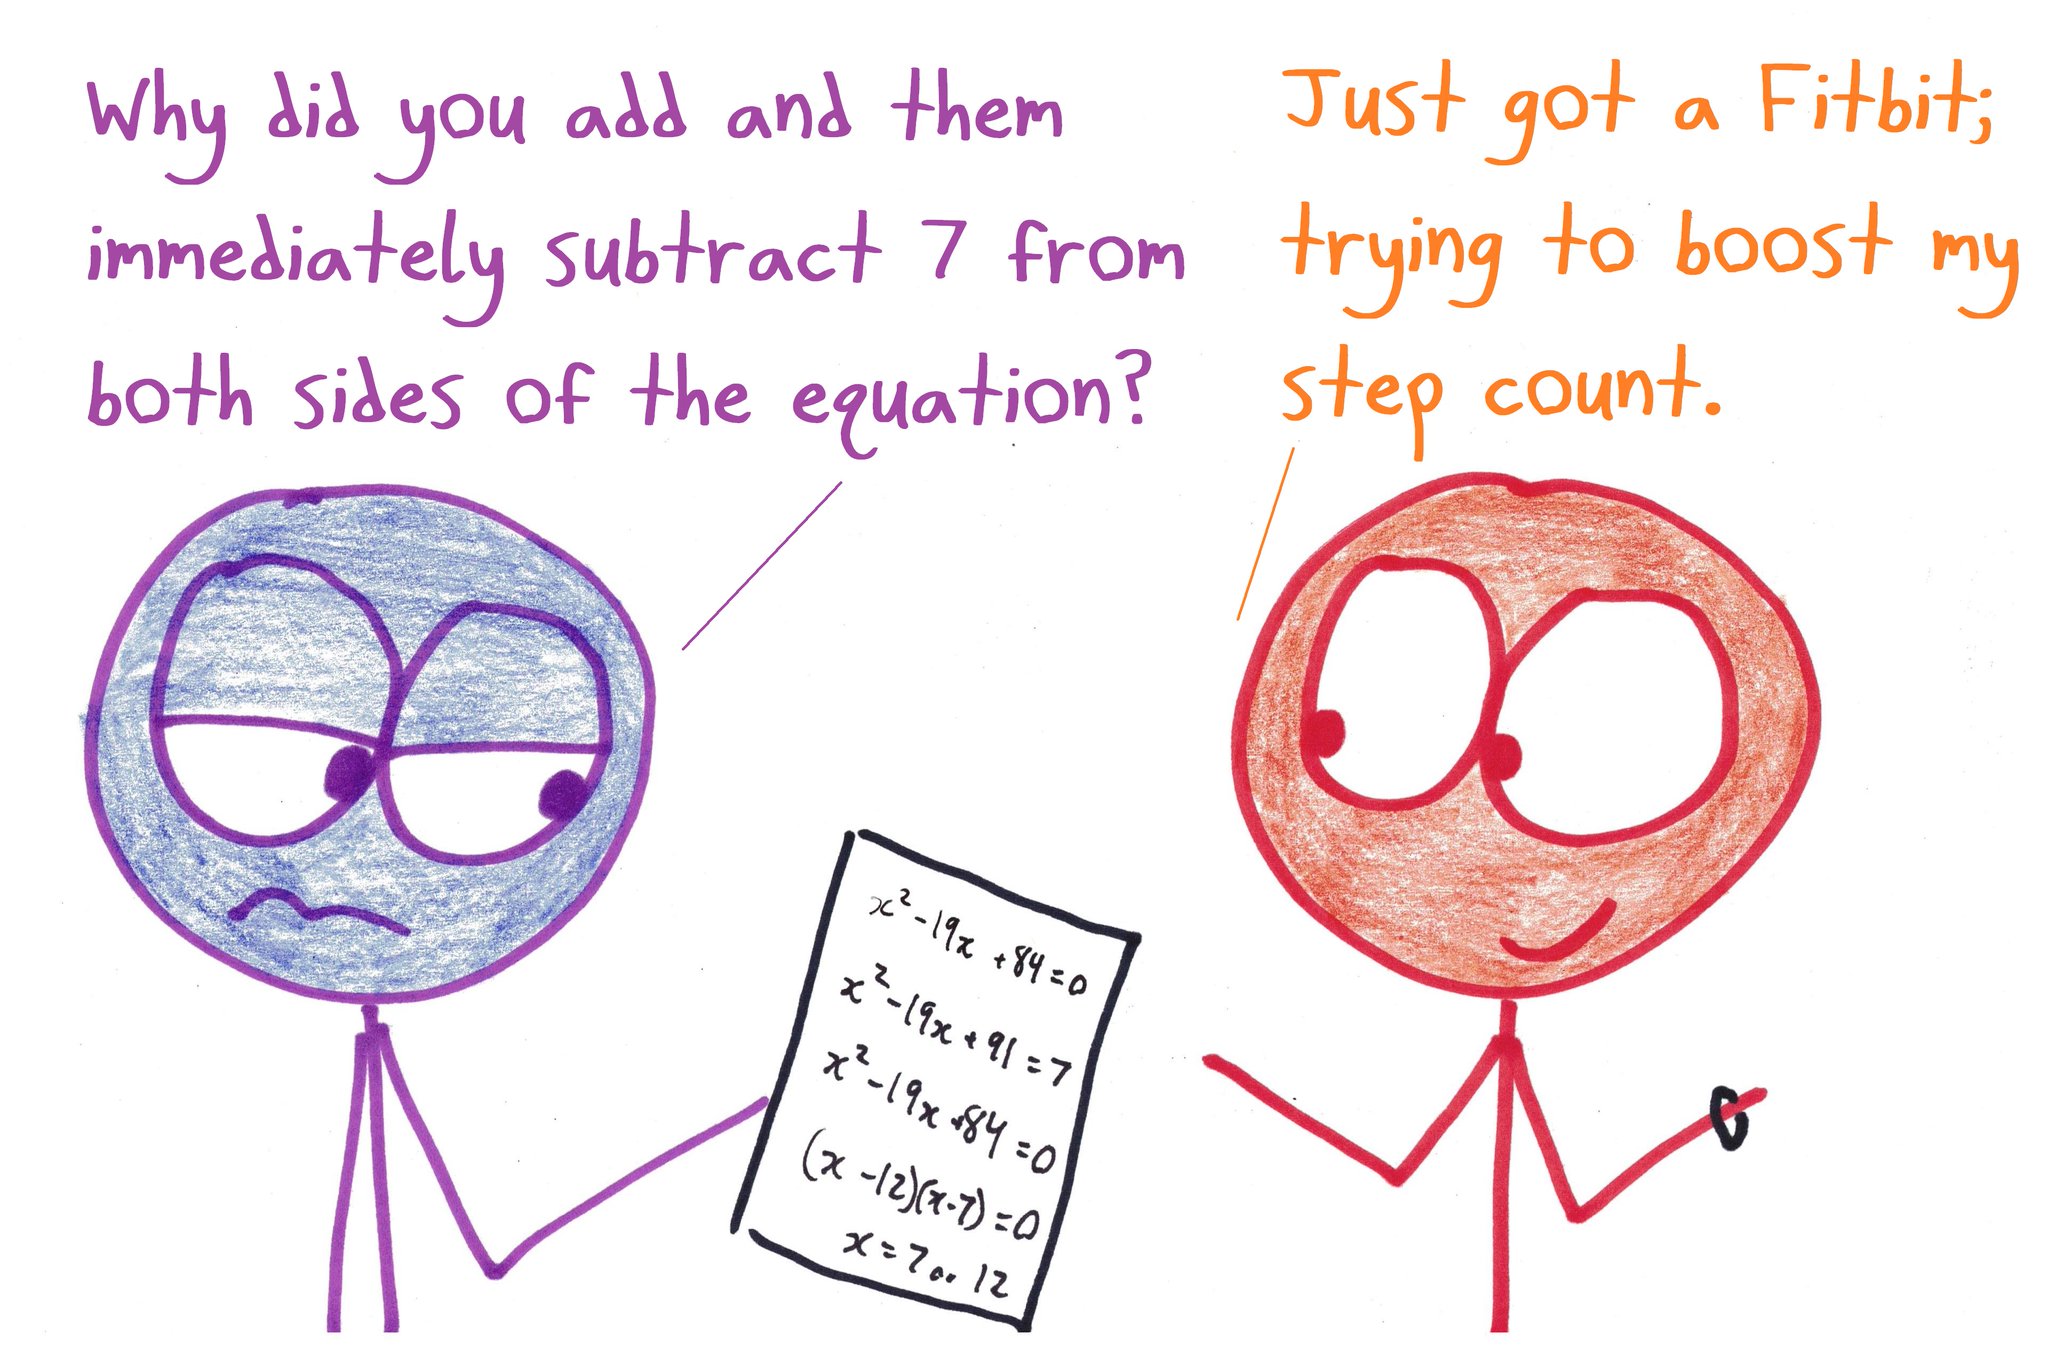 Why did you add and them
immediately subtract 7 from
both sides of the equation?
Just got a Fitbit;
trying to boost my
step count.
x² - 19x + 84 = 0
x² - 19x + 91 = 7
x² - 19x + 84 = 0
(x - 12)(x - 7) = 0
x = 7 or 12